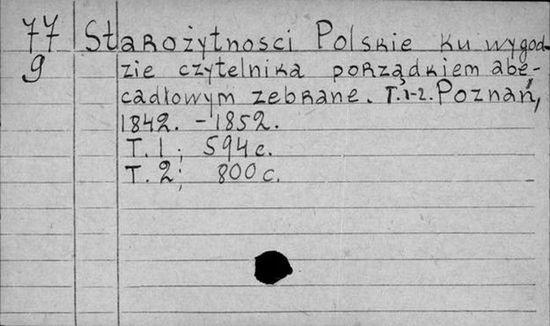 77 Starożytnosci Polskie ku wygod-
9 zie czytelnika porządkiem abe-
cadłowym zebrane. T.1-2. Poznań,
1842. - 1852.
T. 1; 594 c.
T. 2; 800 c.